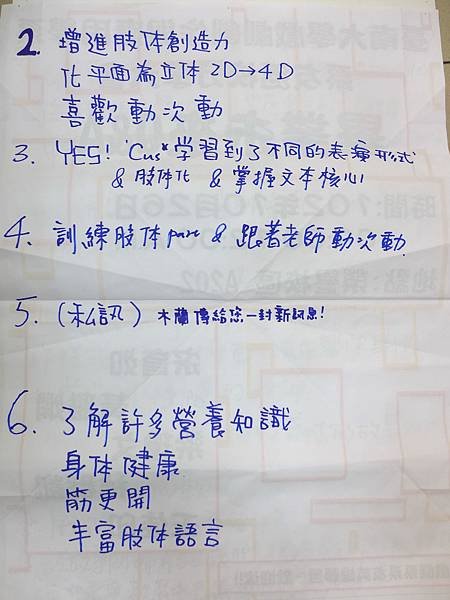 2. 增進肢体創造力
化平面為立体 2D→4D
喜歡動次動
3. YES! "Cus" 学習到了不同的表演形式
& 肢体化 & 掌握文本核心
4. 訓練肢体part & 跟著老師動次動
5. (私訊) 木蘭傳給您一封新訊息!
6. 了解許多營養知識
身体健康
筋更開
丰富肢体語言